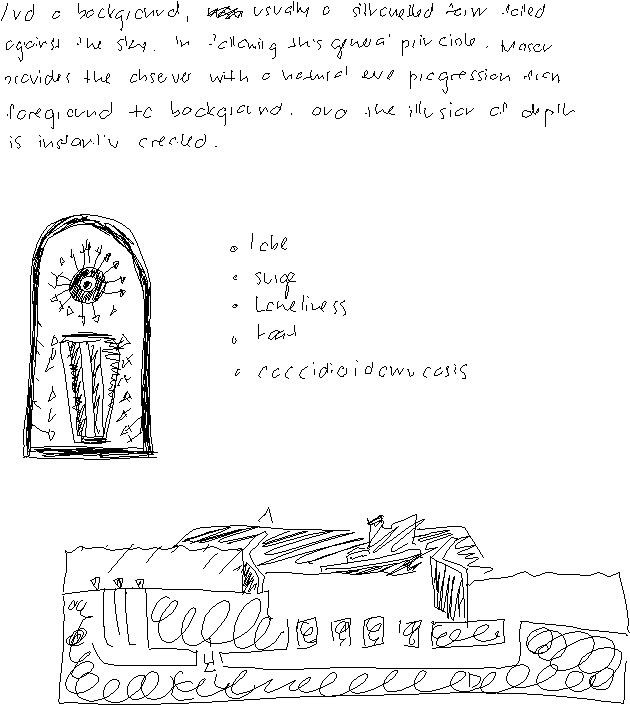 and a background, usually a silhouetted form
against the sky. In following this general principle, Moser
provides the observer with a natural eye progression from
foreground to background, and the illusion of depth
is instantly created.
lobe
surge
Loneliness
toad
coccidioidomycosis